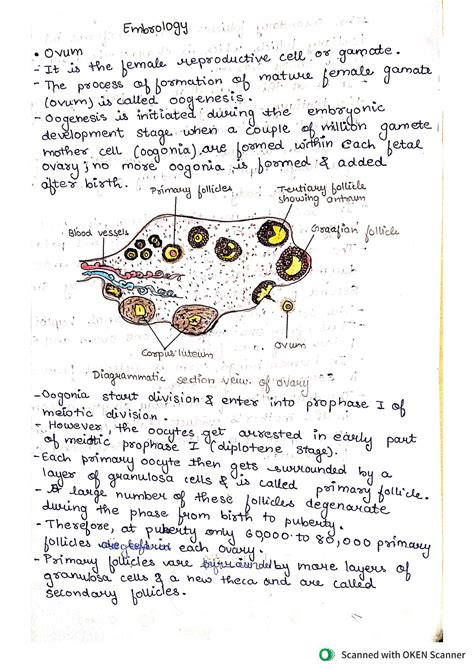 Embrology
• Ovum
- It is the female reproductive cell or gamate.
- The process of formation of mature female gamate
(ovum) is called oogenesis.
- Oogenesis is initiated during the embryonic
development stage when a couple of million gamete
mother cell (oogonia) are formed within each fetal
ovary; no more oogonia is formed & added
after birth.
Primary follicles
Tertiary follicle
showing antrum
Blood vessels
Graafian follicle
Ovum
Corpus luteum
Diagrammatic section veiw of ovary
- Oogonia start division & enter into prophase I of
meiotic division.
- However, the oocytes get arrested in early part
of meiotic prophase I (diplotene stage).
- Each primary oocyte then gets surrounded by a
layer of granulosa cells & is called primary follicle.
- A large number of these follicles degenarate
during the phase from birth to puberty.
- Therefore, at puberty only 60,000 to 80,000 primary
follicles each ovary.
- Primary follicles are surrounded by more layers of
granulosa cells & a new theca and are called
secondary follicles.
Scanned with OKEN Scanner